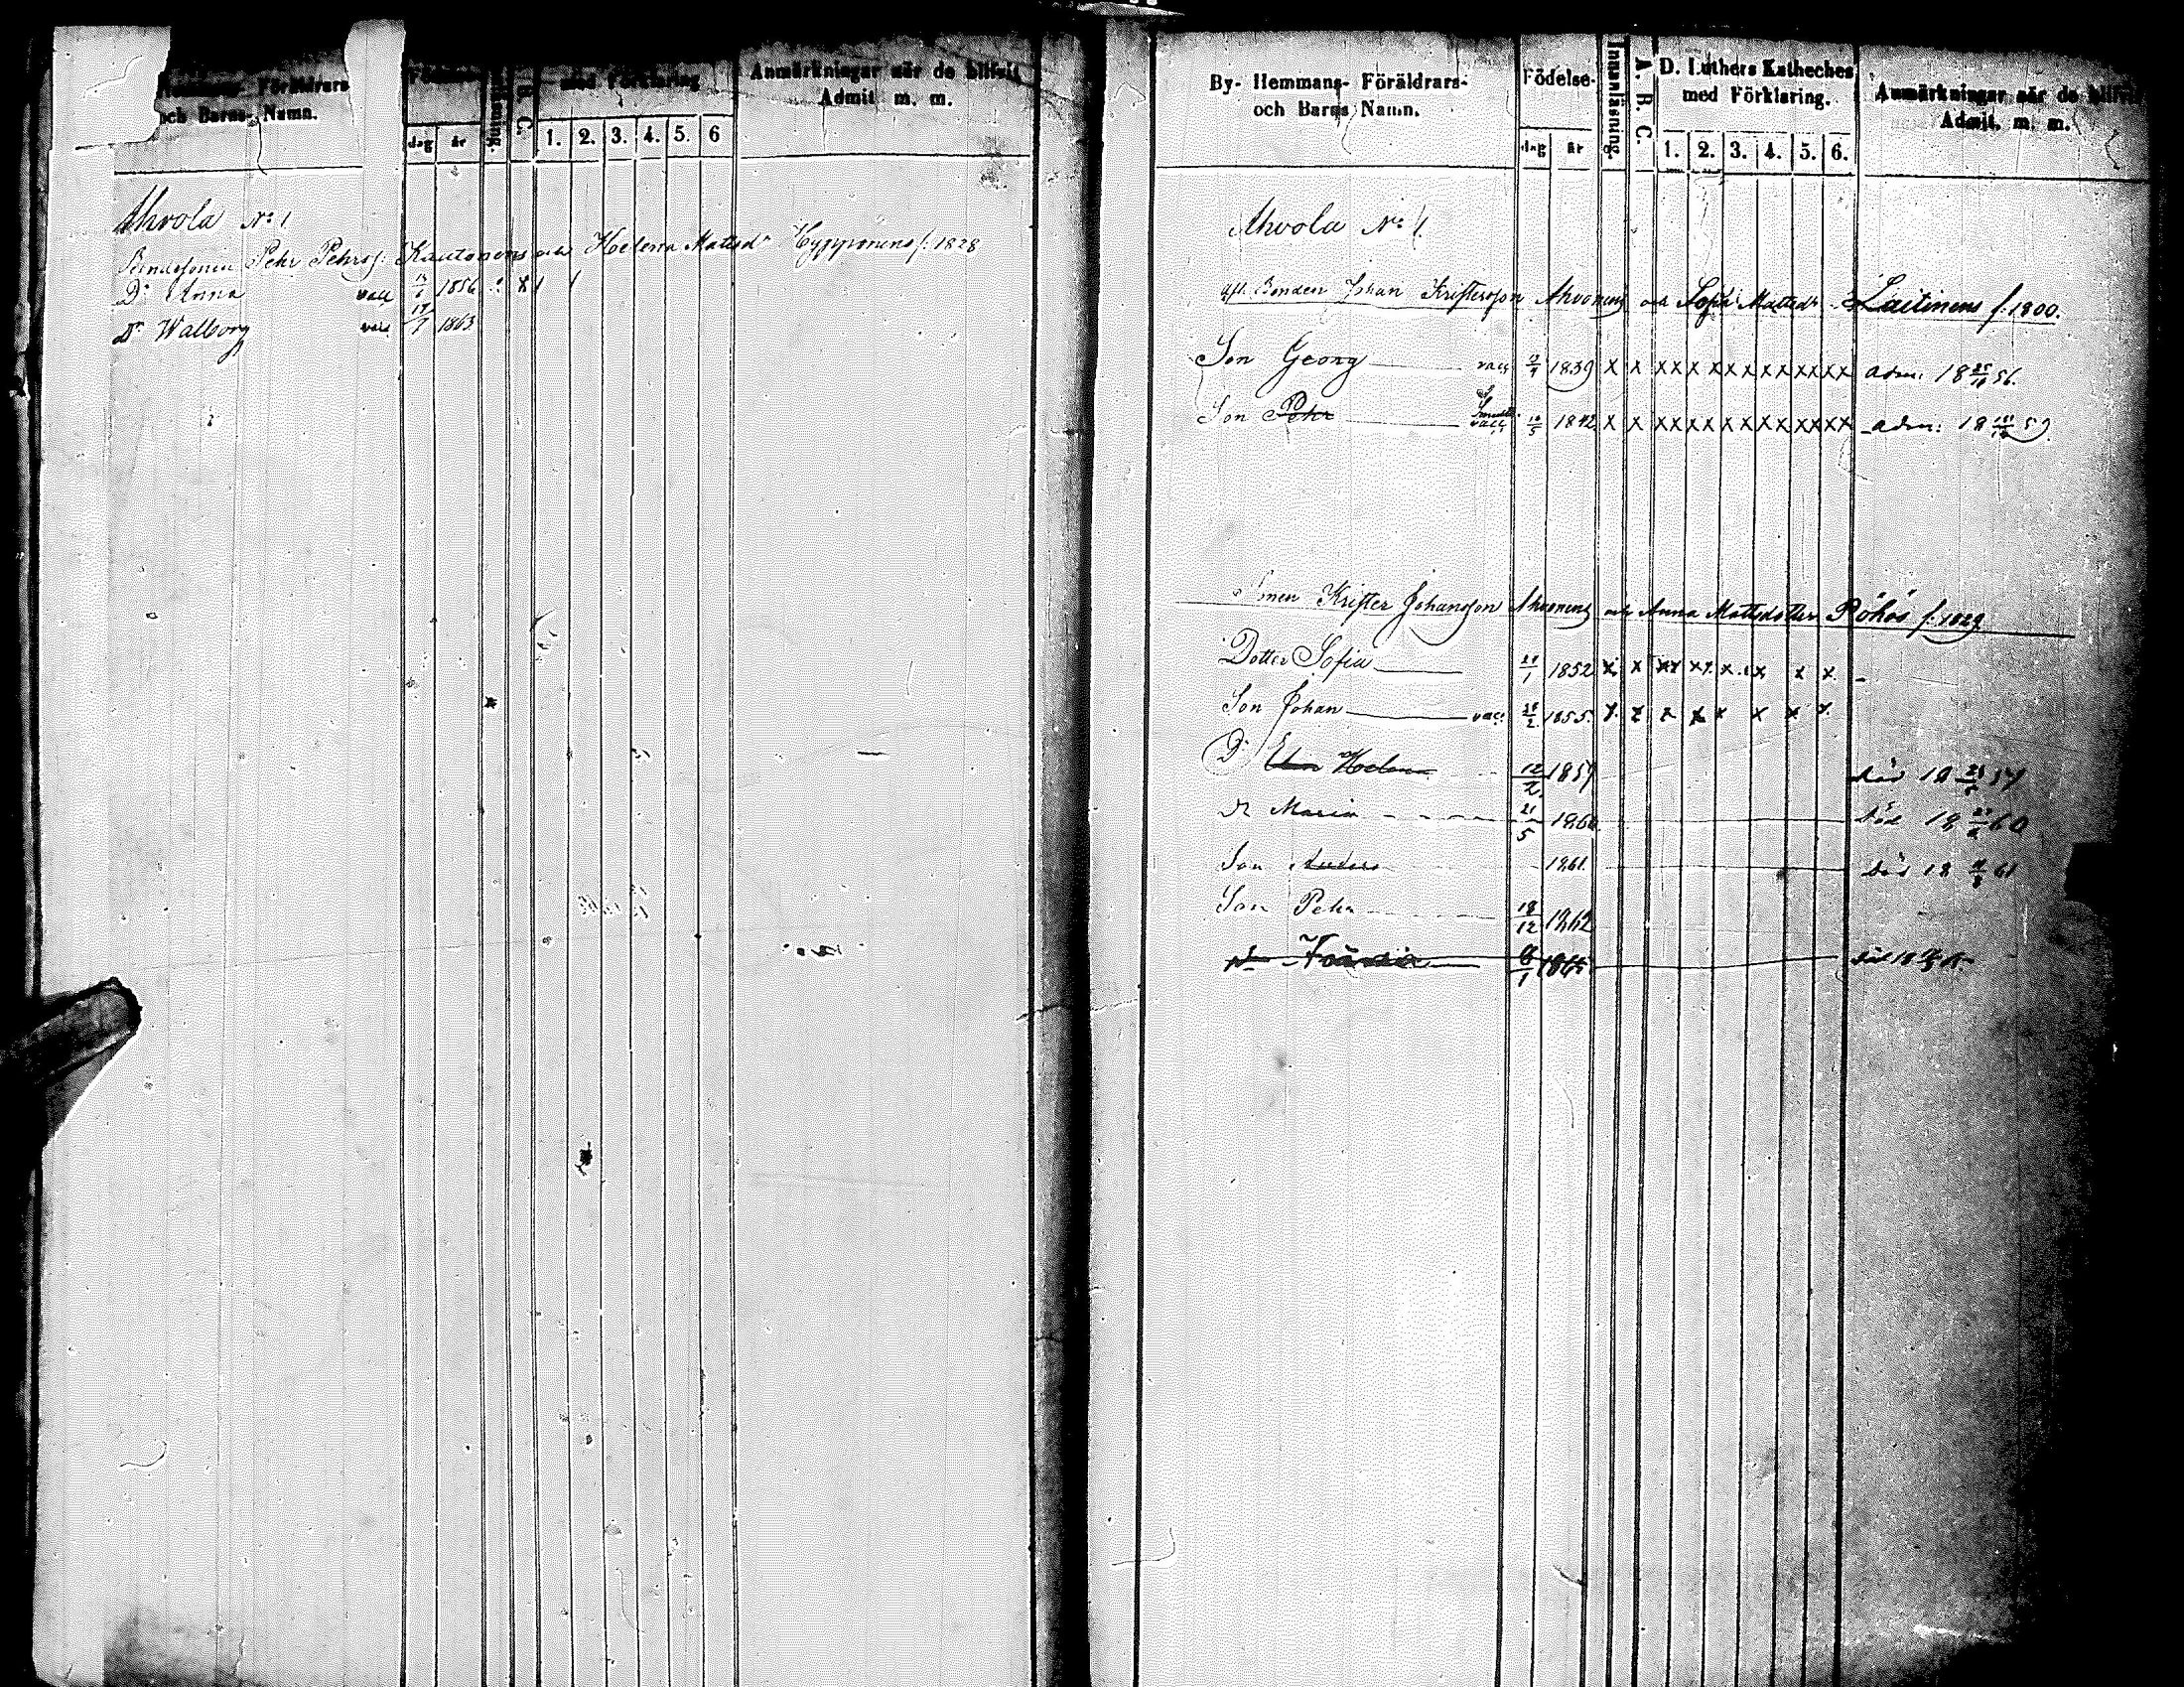 Hemmans- Föräldrars
och Barns- Namn.
dag år
1. 2. 3. 4. 5. 6
med Förklaring
Anmärkningar när de blifvit
Admit m. m.
Ahvola No 1
Pehr Pehrs: Kautonens och Helena Mattsdr Hyppönens f. 1828
Dr Anna vacc 1856
Dr Walborg vacc 17/7 1863
By- Hemmans- Föräldrars-
och Barns Namn.
Födelse-
dag år
Innanläsning.
A. B. C.
D. Luthers Katheches
med Förklaring.
1. 2. 3. 4. 5. 6.
Anmärkningar när de blifvit
Admit. m. m.
Ahvola No 1
afl. Bonden Johan Kristersson Ahvonens och Sofia Mattsdr Laitinens f. 1800.
Son Georg vacc 1839 x x xx xx xx xx xx xx adm: 18 56.
Son Pehr vacc 1842 x x xx xx xx xx xx xx adm: 18 59
Sonen Krister Johansson Ahvonens och Anna Mattsdotter Röhös f. 1829
Dotter Sofia 21/1 1852 x x xx xx x x x x
Son Johan vacc 28/2 1855 x x x x x x x x
Dr Helena 12/2 1857 död 18 57
Dr Maria 21/5 1860 död 18 60
Son Anders 1861 död 18 61
Son Pehr 18/12 1862
dr 6/1 1865 död 18